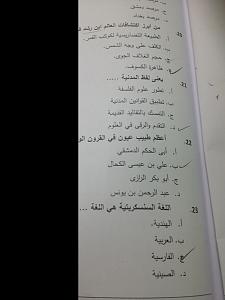 ج. مرصد دمشق
د. مرصد بغداد
20. من أبرز اكتشافات العالم ابن رشد
أ. الطبيعة التضاريسية لكوكب القمر.
ب. الكلف على وجه الشمس.
ج. حجم الغلاف الجوى.
د. ظاهرة الكسوف.
21. يعنى لفظ المدنية ......
أ. تطور علوم الفلسفة
ب. تطبيق القوانين المدنية
ج. التمسك بالتقاليد القديمة
د. التقدم والرقى في العلوم
22. أعظم طبيب عيون في القرون
أ. أبى الحكم الدمشقي
ب. علي بن عيسى الكحال
ج. أبو بكر الرازى
د. عبد الرحمن بن يونس
23. اللغة السنسكريتية هي اللغة ....
أ. الهندية.
ب. العربية
ج. الفارسية
د. الصينية